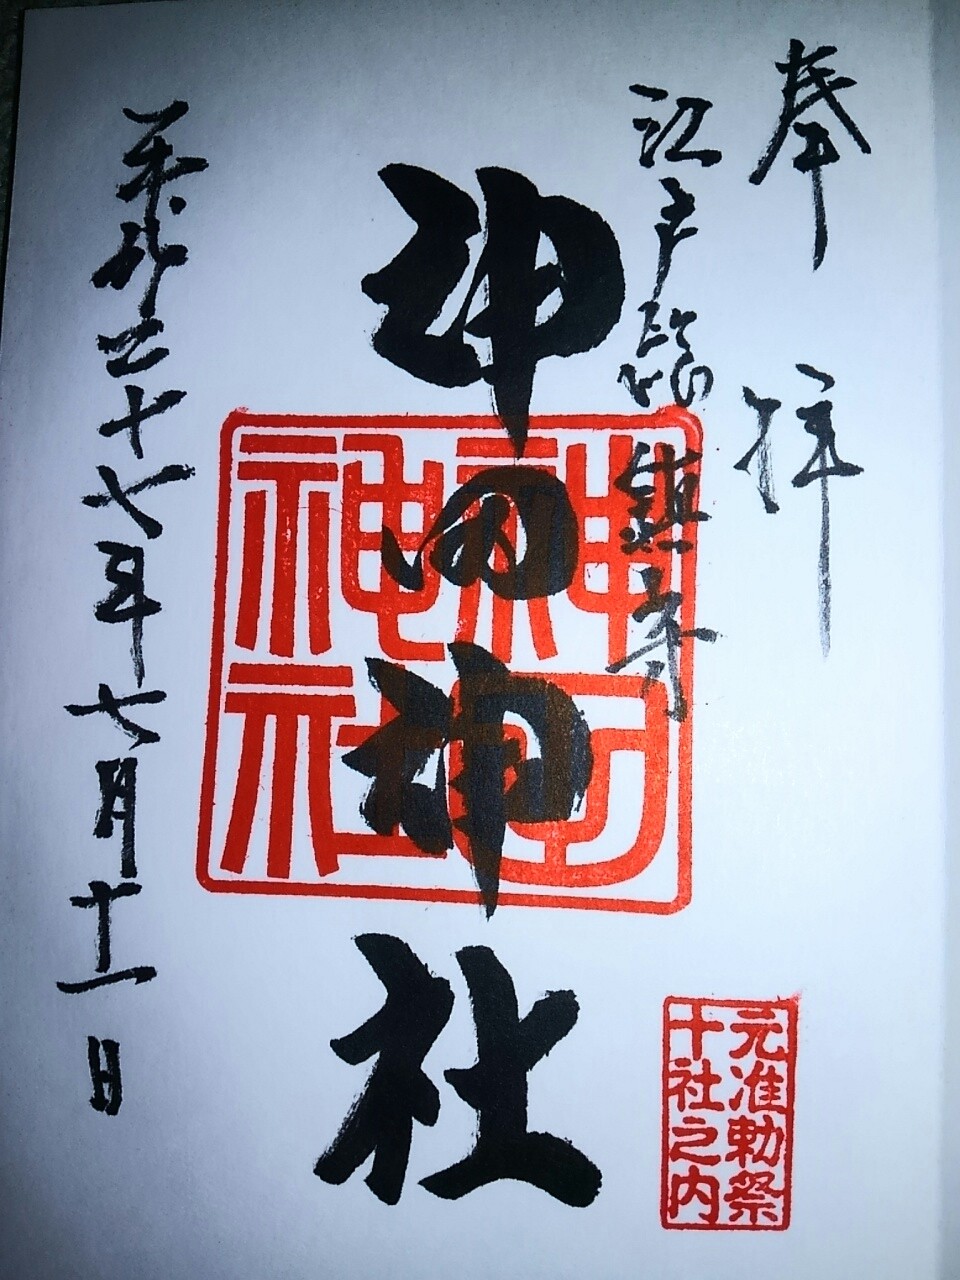 奉拝
江戸総鎮守
神田神社
神田
神社
平成二十七年七月十一日
元准勅祭
十社之内